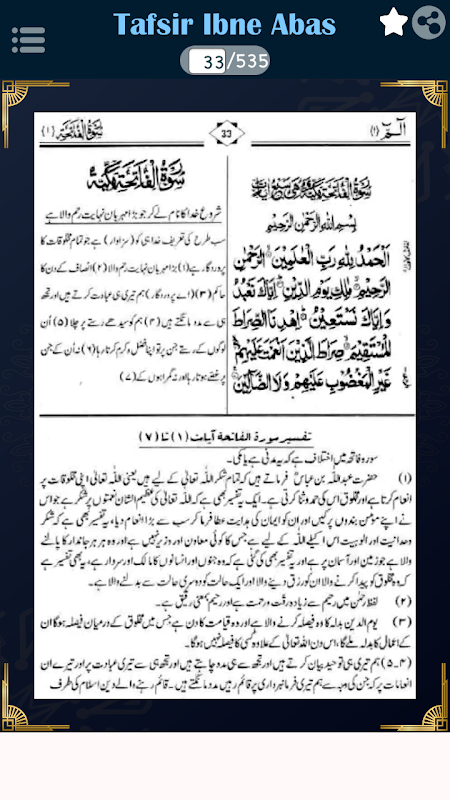 Tafsir Ibne Abas
33/535
الٓمّٓ (۱)
33
سُوْرَةُ الْفَاتِحَةِ (۱)
سُوْرَةُ الْفَاتِحَةِ مَكِّيَّةٌ وَهِيَ سَبْعُ اٰيَاتٍ
بِسْمِ اللهِ الرَّحْمٰنِ الرَّحِيْمِ
اَلْحَمْدُ لِلّٰهِ رَبِّ الْعٰلَمِيْنَ الرَّحْمٰنِ
الرَّحِيْمِ مٰلِكِ يَوْمِ الدِّيْنِ اِيَّاكَ نَعْبُدُ
وَاِيَّاكَ نَسْتَعِيْنُ اِهْدِنَا الصِّرَاطَ
الْمُسْتَقِيْمَ صِرَاطَ الَّذِيْنَ اَنْعَمْتَ عَلَيْهِمْ
غَيْرِ الْمَغْضُوْبِ عَلَيْهِمْ وَلَا الضَّآلِّيْنَ
سُوْرَةُ الْفَاتِحَةِ مَكِّيَّةٌ
شروع خدا کا نام لے کر جو بڑا مہربان نہایت رحم والا ہے
سب طرح کی تعریف خدا ہی کو (سزاوار) ہے جو تمام مخلوقات کا
پروردگار ہے (۱) بڑا مہربان نہایت رحم والا (۲) انصاف کے دن کا
حاکم (۳) (اے پروردگار) ہم تیری ہی عبادت کرتے ہیں اور تجھ
ہی سے مدد مانگتے ہیں (۴) ہم کو سیدھے رستے پر چلا (۵) اُن
لوگوں کے رستے جن پر تو اپنا فضل و کرم کرتا رہا (۶) نہ اُن کے جن
پر غصے ہوتا رہا اور نہ گمراہوں کے (۷)
تفسیر سورۃ الفاتحۃ آیات (۱) تا (۷)
سورہ فاتحہ میں اختلاف ہے کہ یہ مدنی ہے یا مکی۔
(۱) حضرت عبداللہ بن عباسؓ فرماتے ہیں کہ تمام شکر اللہ تعالیٰ کے لیے ہے یعنی اللہ تعالیٰ اپنی مخلوقات پر
انعام کرتا ہے اور مخلوق اس کی حمد و ثنا کرتی ہے۔ ایک یہ تفسیر بھی ہے کہ اللہ تعالیٰ کی عظیم الشان نعمتوں پر شکر ہے جو اس
نے اپنے مؤمن بندوں پر کیں اور ان کو ایمان کی ہدایت عطا فرما کر سب سے بڑا انعام دیا، یہ تفسیر بھی ہے کہ شکر
وحدانیت اور الوہیت اس اکیلے اللہ کے لیے ہے جس کا کوئی معاون اور وزیر نہیں ہے اور وہ ہر جاندار کا پالنے
والا ہے جو زمین اور آسمان پر ہے اور یہ تفسیر بھی کی گئی ہے کہ وہ جنوں اور انسانوں کا مالک اور سردار ہے، یہ بھی تفسیر ہے
کہ وہ مخلوق کو پیدا کرنے والا ان کو رزق دینے والا اور ایک حالت کو دوسری حالت سے بدلنے والا ہے۔
(۲) لفظ رحمٰن میں رحیم سے زیادہ رقت و رحمت ہے اور رحیم بمعنی رفیق ہے۔
(۳) یوم الدین بدلہ کا وہ فیصلہ کرنے والا ہے اور وہ قیامت کا دن ہے جس میں مخلوق کے درمیان فیصلہ ہوگا ان
کے اعمال کا بدلہ ملے گا، اس دن اللہ تعالیٰ کے علاوہ کسی کا فیصلہ نہیں ہوگا۔
(۴۔۵) ہم تیری ہی توحید بیان کرتے ہیں اور تجھ سے ہی مدد چاہتے ہیں اور تجھ ہی سے تیری عبادت پر اور تیرے ان
انعامات پر کہ جن کی وجہ سے ہم تیری فرمانبرداری پر قائم رہیں مدد مانگتے ہیں۔ قائم رہنے والے دین اسلام کی طرف